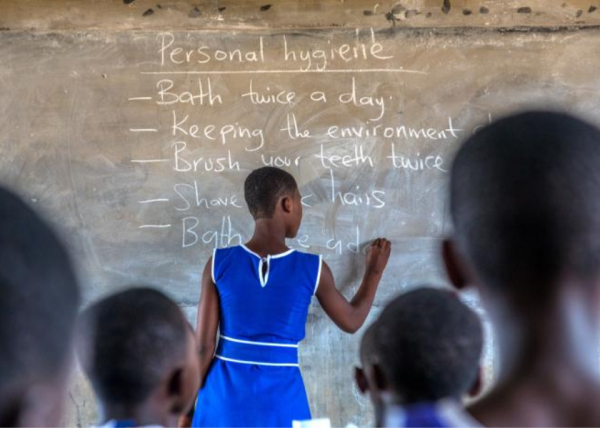 Personal hygiene
- Bath twice a day.
- Keeping the environment
- Brush your teeth twice
- Shave hairs
- Bath ad